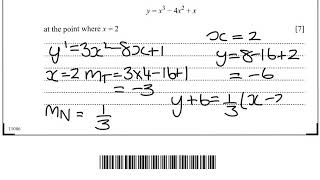 y = x³ − 4x² + x
at the point where x = 2 [7]
x = 2
y' = 3x² − 8x + 1
y = 8 − 16 + 2
= −6
x = 2 m_T = 3×4 − 16 + 1
= −3
y + 6 = 1/3 (x −
m_N = 1/3